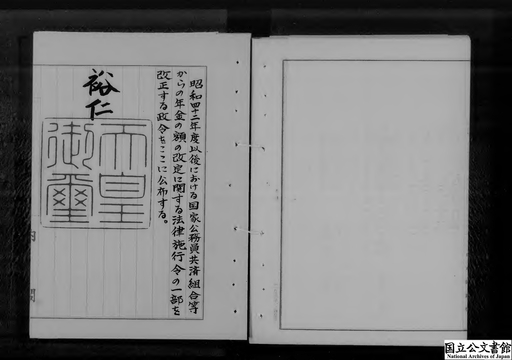 昭和四十二年度以後における国家公務員共済組合等
からの年金の額の改定に関する法律施行令の一部を
改正する政令をここに公布する。
裕仁
天皇
御璽
国立公文書館
National Archives of Japan